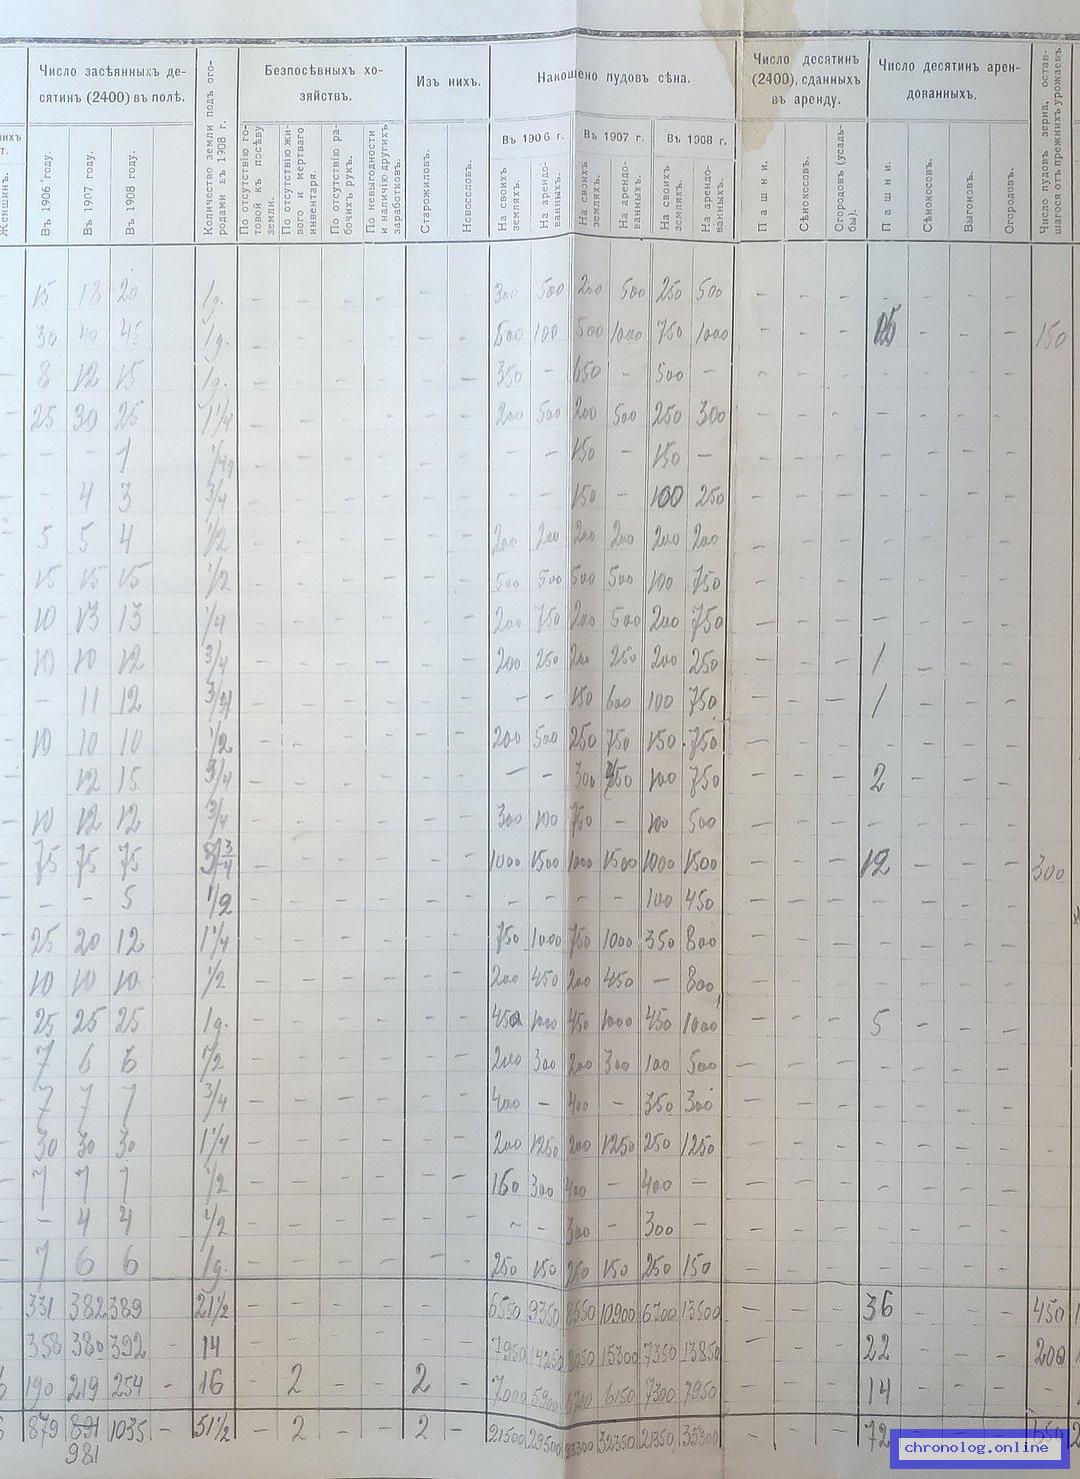 Число засѣянныхъ де-
сятинъ (2400) въ полѣ.
Количество земли подъ ого-
родами въ 1908 г.
Безпосѣвныхъ хо-
зяйствъ.
Изъ нихъ.
Накошено пудовъ сѣна.
Число десятинъ
(2400), сданныхъ
въ аренду.
Число десятинъ арен-
дованныхъ.
Число пудовъ зерна, остав-
шагося отъ прежнихъ урожаевъ.
Женщинъ.
Въ 1906 году.
Въ 1907 году.
Въ 1908 году.
По отсутствію го-
товой къ посѣву
земли.
По отсутствію жи-
вого и мертваго
инвентаря.
По отсутствію ра-
бочихъ рукъ.
По невыгодности
и наличію другихъ
заработковъ.
Старожиловъ.
Новоселовъ.
Въ 1906 г.
Въ 1907 г.
Въ 1908 г.
На своихъ
земляхъ.
На арендо-
ванныхъ.
На своихъ
земляхъ.
На арендо-
ванныхъ.
На своихъ
земляхъ.
На арендо-
ванныхъ.
Пашни.
Сѣнокосовъ.
Огородовъ (усадь-
бы).
Пашни.
Сѣнокосовъ.
Выгоновъ.
Огородовъ.
15 18 20 1д. - - - - - - 300 500 200 500 250 500 - - - - - - -
30 40 45 1д. - - - - - - 500 100 500 1000 750 1000 - - - 15 - - - 150
8 12 15 1д. - - - - - - 350 - 650 - 500 - - - - - - - -
25 30 25 1 1/4 - - - - - - 200 500 200 500 250 300 - - - - - - -
- - 1 - - - - - - - - 150 - 150 - - - - - - - -
- 4 3 3/4 - - - - - - - - 150 - 100 250 - - - - - - -
5 5 4 1/2 - - - - - - 200 200 200 200 200 200 - - - - - - -
15 15 15 1/2 - - - - - - 500 500 500 500 100 750 - - - - - - -
10 13 13 1/4 - - - - - - 200 750 200 500 200 750 - - - - - - -
10 10 12 3/4 - - - - - - 200 250 200 250 200 250 - - - 1 - - -
- 11 12 3/4 - - - - - - - - 150 600 100 750 - - - 1 - - -
10 10 10 1/2 - - - - - - 200 500 250 750 150 750 - - - - - - -
12 15 3/4 - - - - - - - - 300 100 750 - - - 2 - - -
10 12 12 3/4 - - - - - - 300 100 750 - 100 500 - - - - - - -
75 75 75 3/4 - - - - - - 1000 1500 1000 1500 1000 1500 - - - 12 - - - 300
- - 5 1/2 - - - - - - - - - - 100 450 - - - - - - -
25 20 12 1 1/4 - - - - - - 750 1000 750 1000 350 800 - - - - - - -
10 10 10 1/2 - - - - - - 200 450 200 450 - 800 - - - - - - -
25 25 25 1д. - - - - - - 450 1000 450 1000 450 1000 - - - 5 - - -
7 6 6 1/2 - - - - - - 200 300 200 300 100 500 - - - - - - -
7 7 7 3/4 - - - - - - 400 - 400 - 350 300 - - - - - - -
30 30 30 1 1/4 - - - - - - 200 1250 200 1250 250 1250 - - - - - - - -
7 7 7 1/2 - - - - - - 160 300 400 - 400 - - - - - - - -
- 4 4 1/2 - - - - - - - - 300 - 300 - - - - - - - -
7 6 6 1д. - - - - - - 250 150 250 150 250 150 - - - - - - -
331 382 389 21 1/2 - - - - - - 6550 9350 8550 10900 6300 13500 - - - 36 - - - 450
358 380 392 - 14 - - - - - - 7950 14250 8050 15300 7350 13850 - - - 22 - - - 200
190 219 254 - 16 - 2 - - 2 - 7000 5900 6700 6150 7300 7950 - - - 14 - - - -
879 891 1035 - 51 1/2 - 2 - - 2 - 21500 29500 23300 32350 21350 35300 - - - 72 650
981
chronolog.online